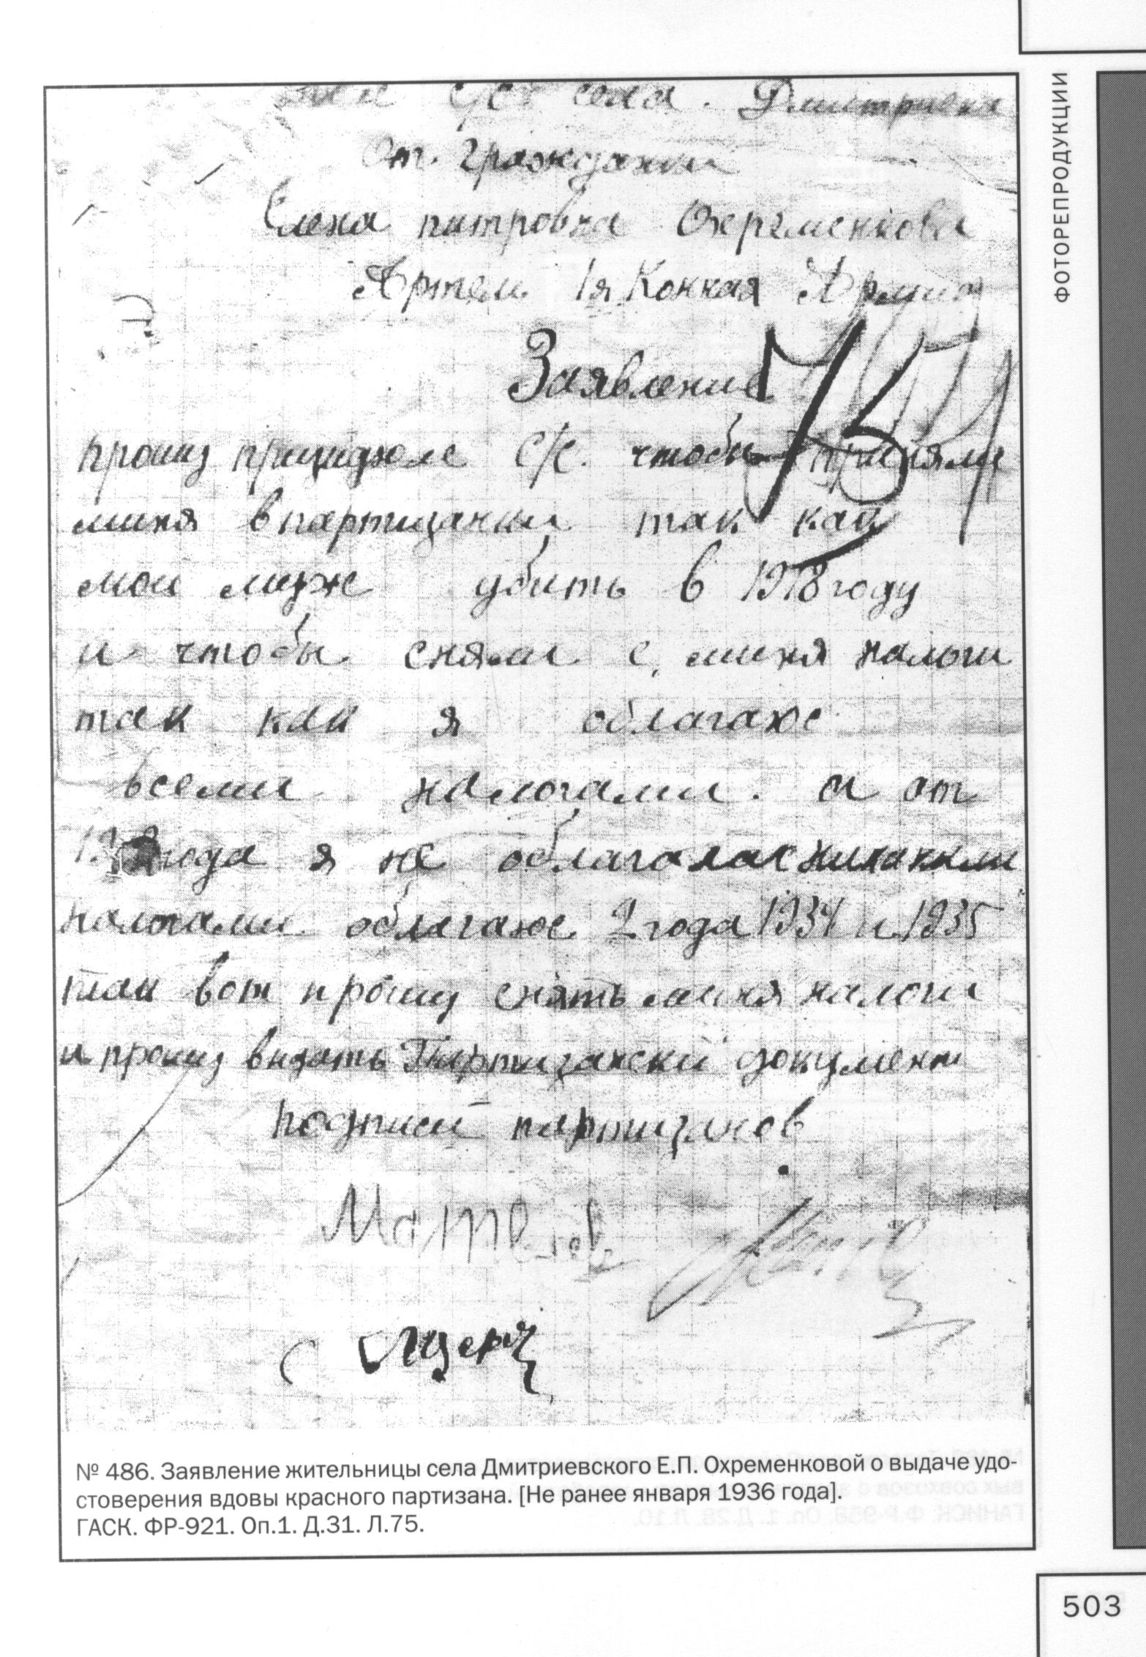 ФОТОРЕПРОДУКЦИИ
с/с села. Дмитриевка
от. гражданки
Елена питровна Охременкова
Артель 1я Конная Армия
Заявление
75
прошу призидюме с/с. чтобы приняли
миня впартизанки так как
мои муж убить в 1918 году
и чтобы сняли с миня налоги
так как я облагаюс
всеми налогами. а от
года я не облагалас никакими
налогами облагаюс 2 года 1934 и 1935
так вот прошу снять миня налоги
и прошу видать Партизански документ
подписи партизанов
№ 486. Заявление жительницы села Дмитриевского Е.П. Охременковой о выдаче удо-
стоверения вдовы красного партизана. [Не ранее января 1936 года].
ГАСК. ФР-921. Оп.1. Д.31. Л.75.
503